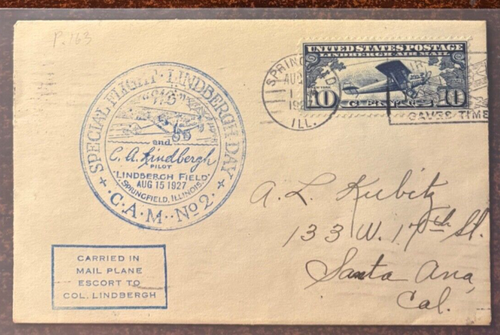 P. 163
UNITED STATES POSTAGE
LINDBERGH AIR MAIL
10 CENTS 10
SPRINGFIELD
AUG
ILL.
SAVES TIME
SPECIAL FLIGHT · LINDBERGH DAY
and
C. A. Lindbergh
PILOT
"LINDBERGH FIELD"
AUG 15 1927
SPRINGFIELD, ILLINOIS.
· C · A · M · No 2 ·
A. L. Kubitz
133 W. 17th St.
Santa Ana,
Cal.
CARRIED IN
MAIL PLANE
ESCORT TO
COL. LINDBERGH